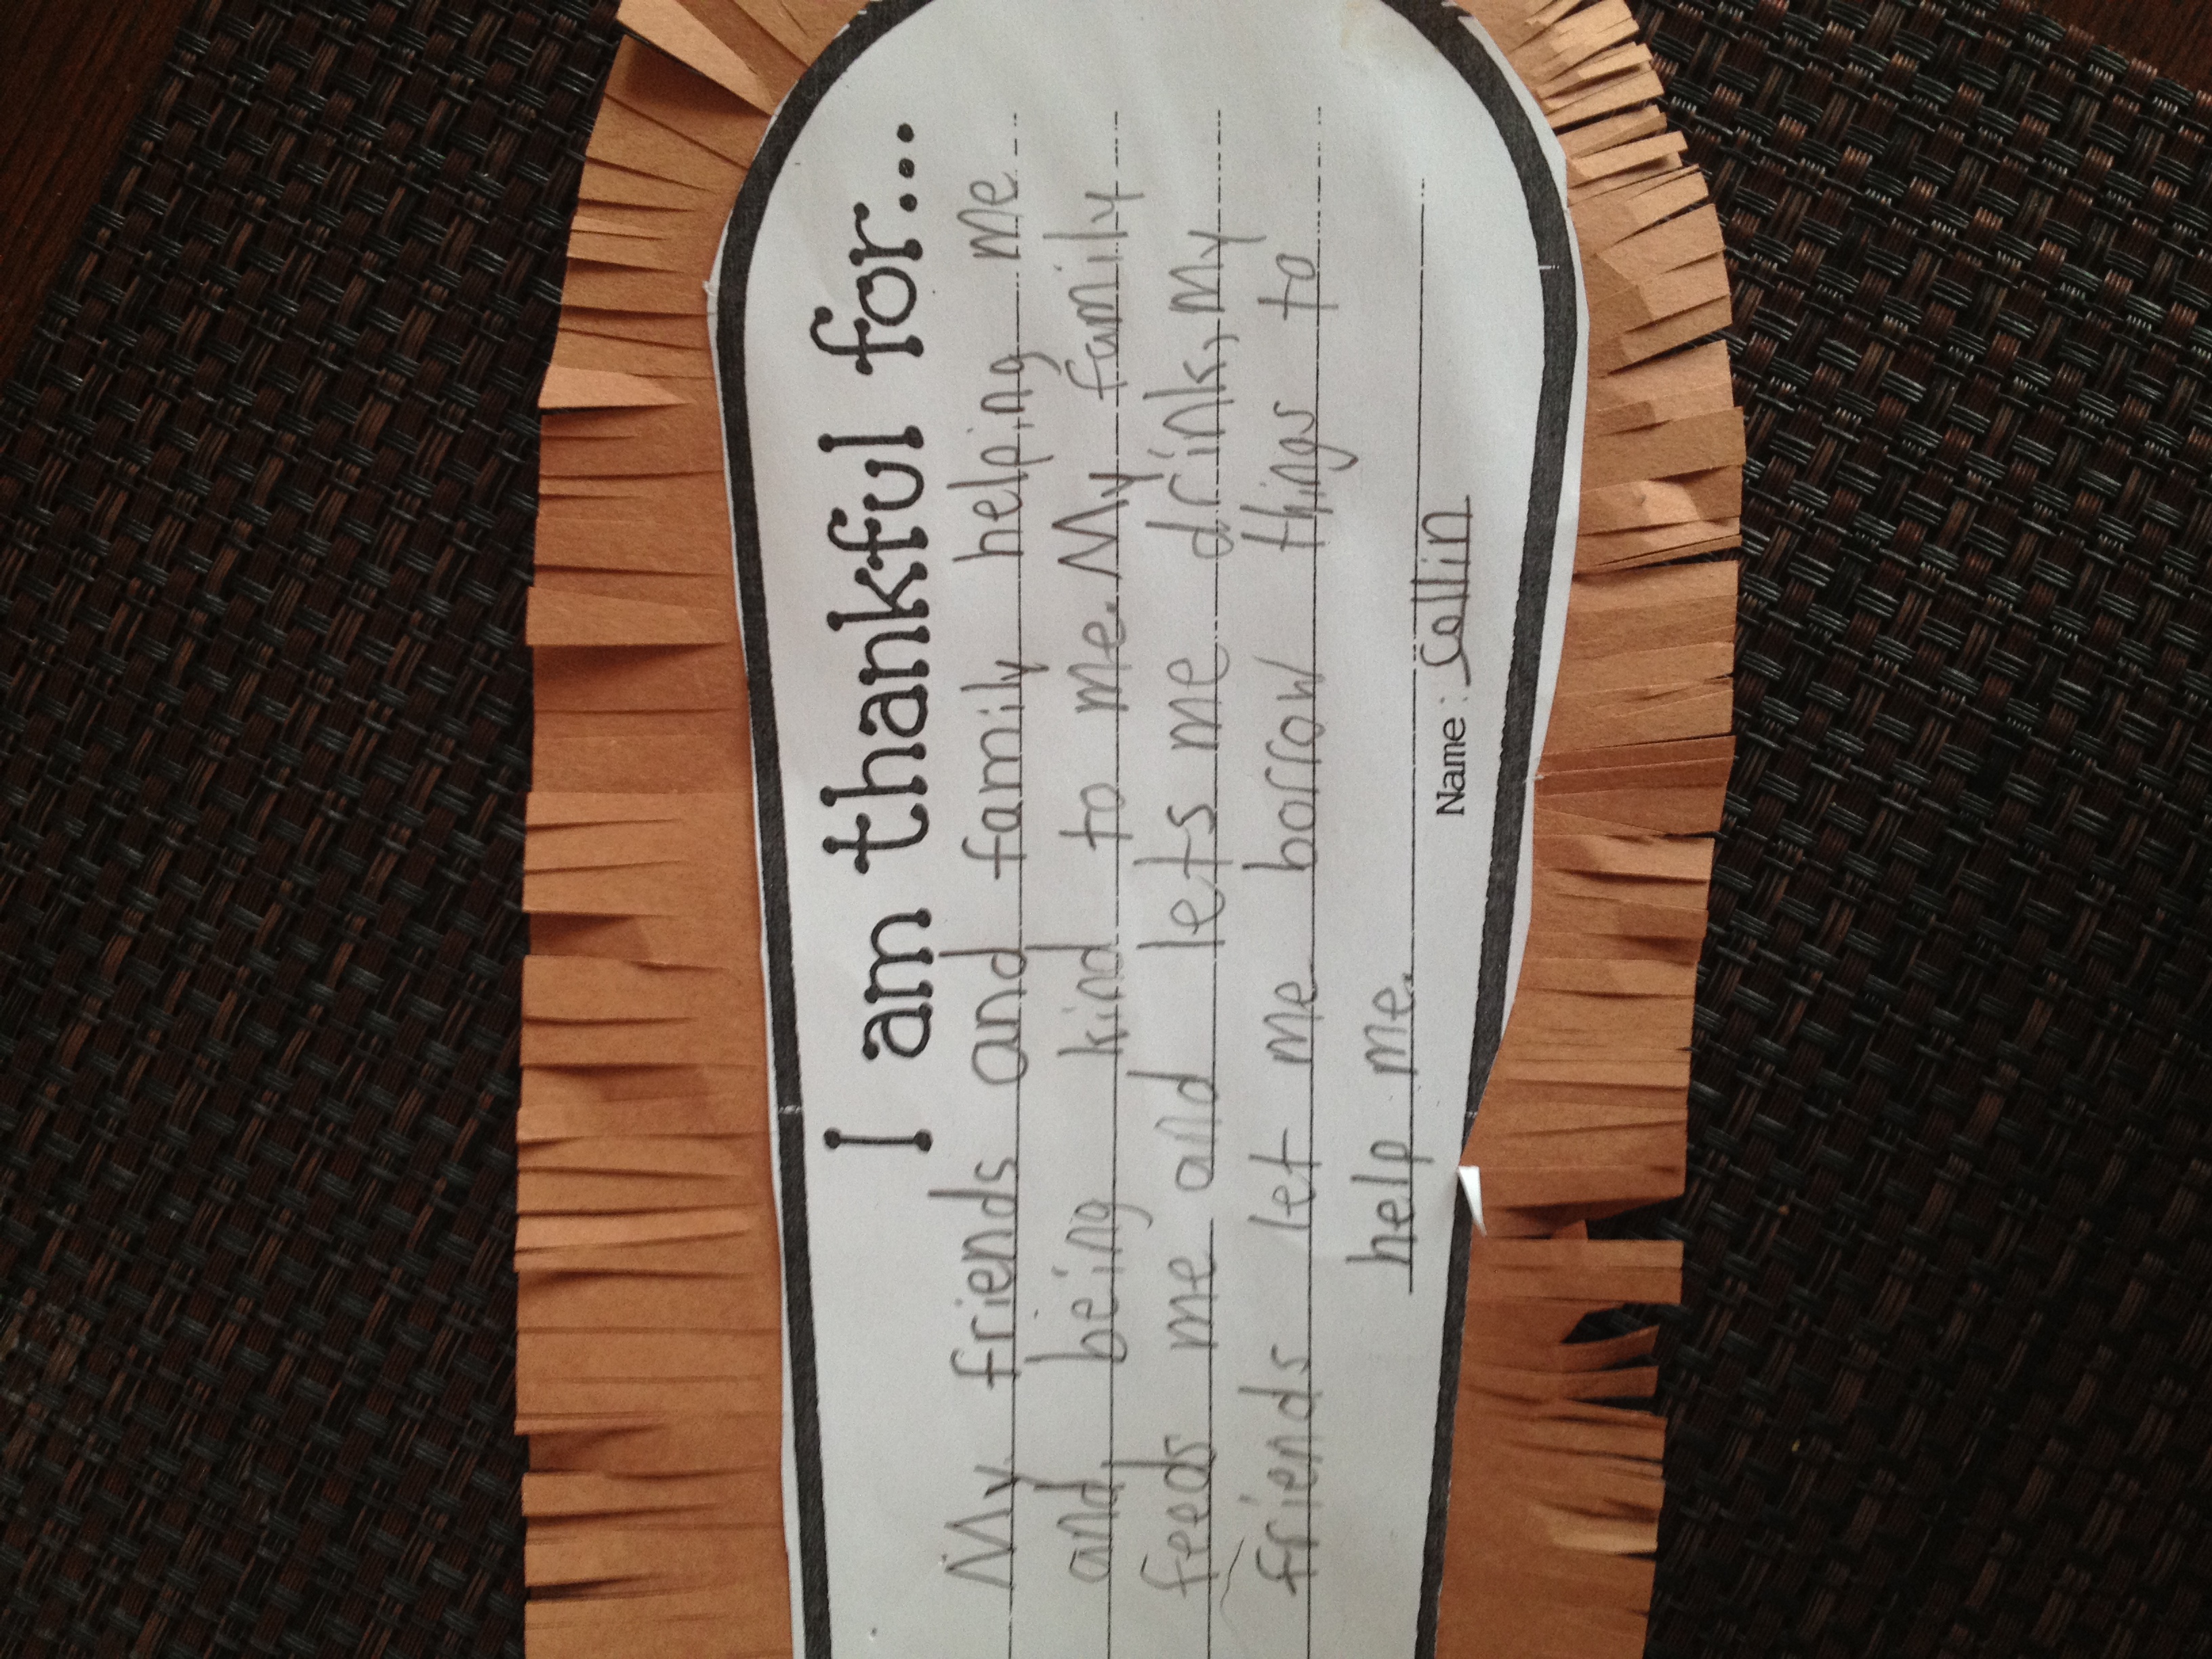 I am thankful for...
My friends and family helping me
and being kind to me. My family
feeds me and lets me drink, My
friends let me borrow things to
help me.
Name: Collin